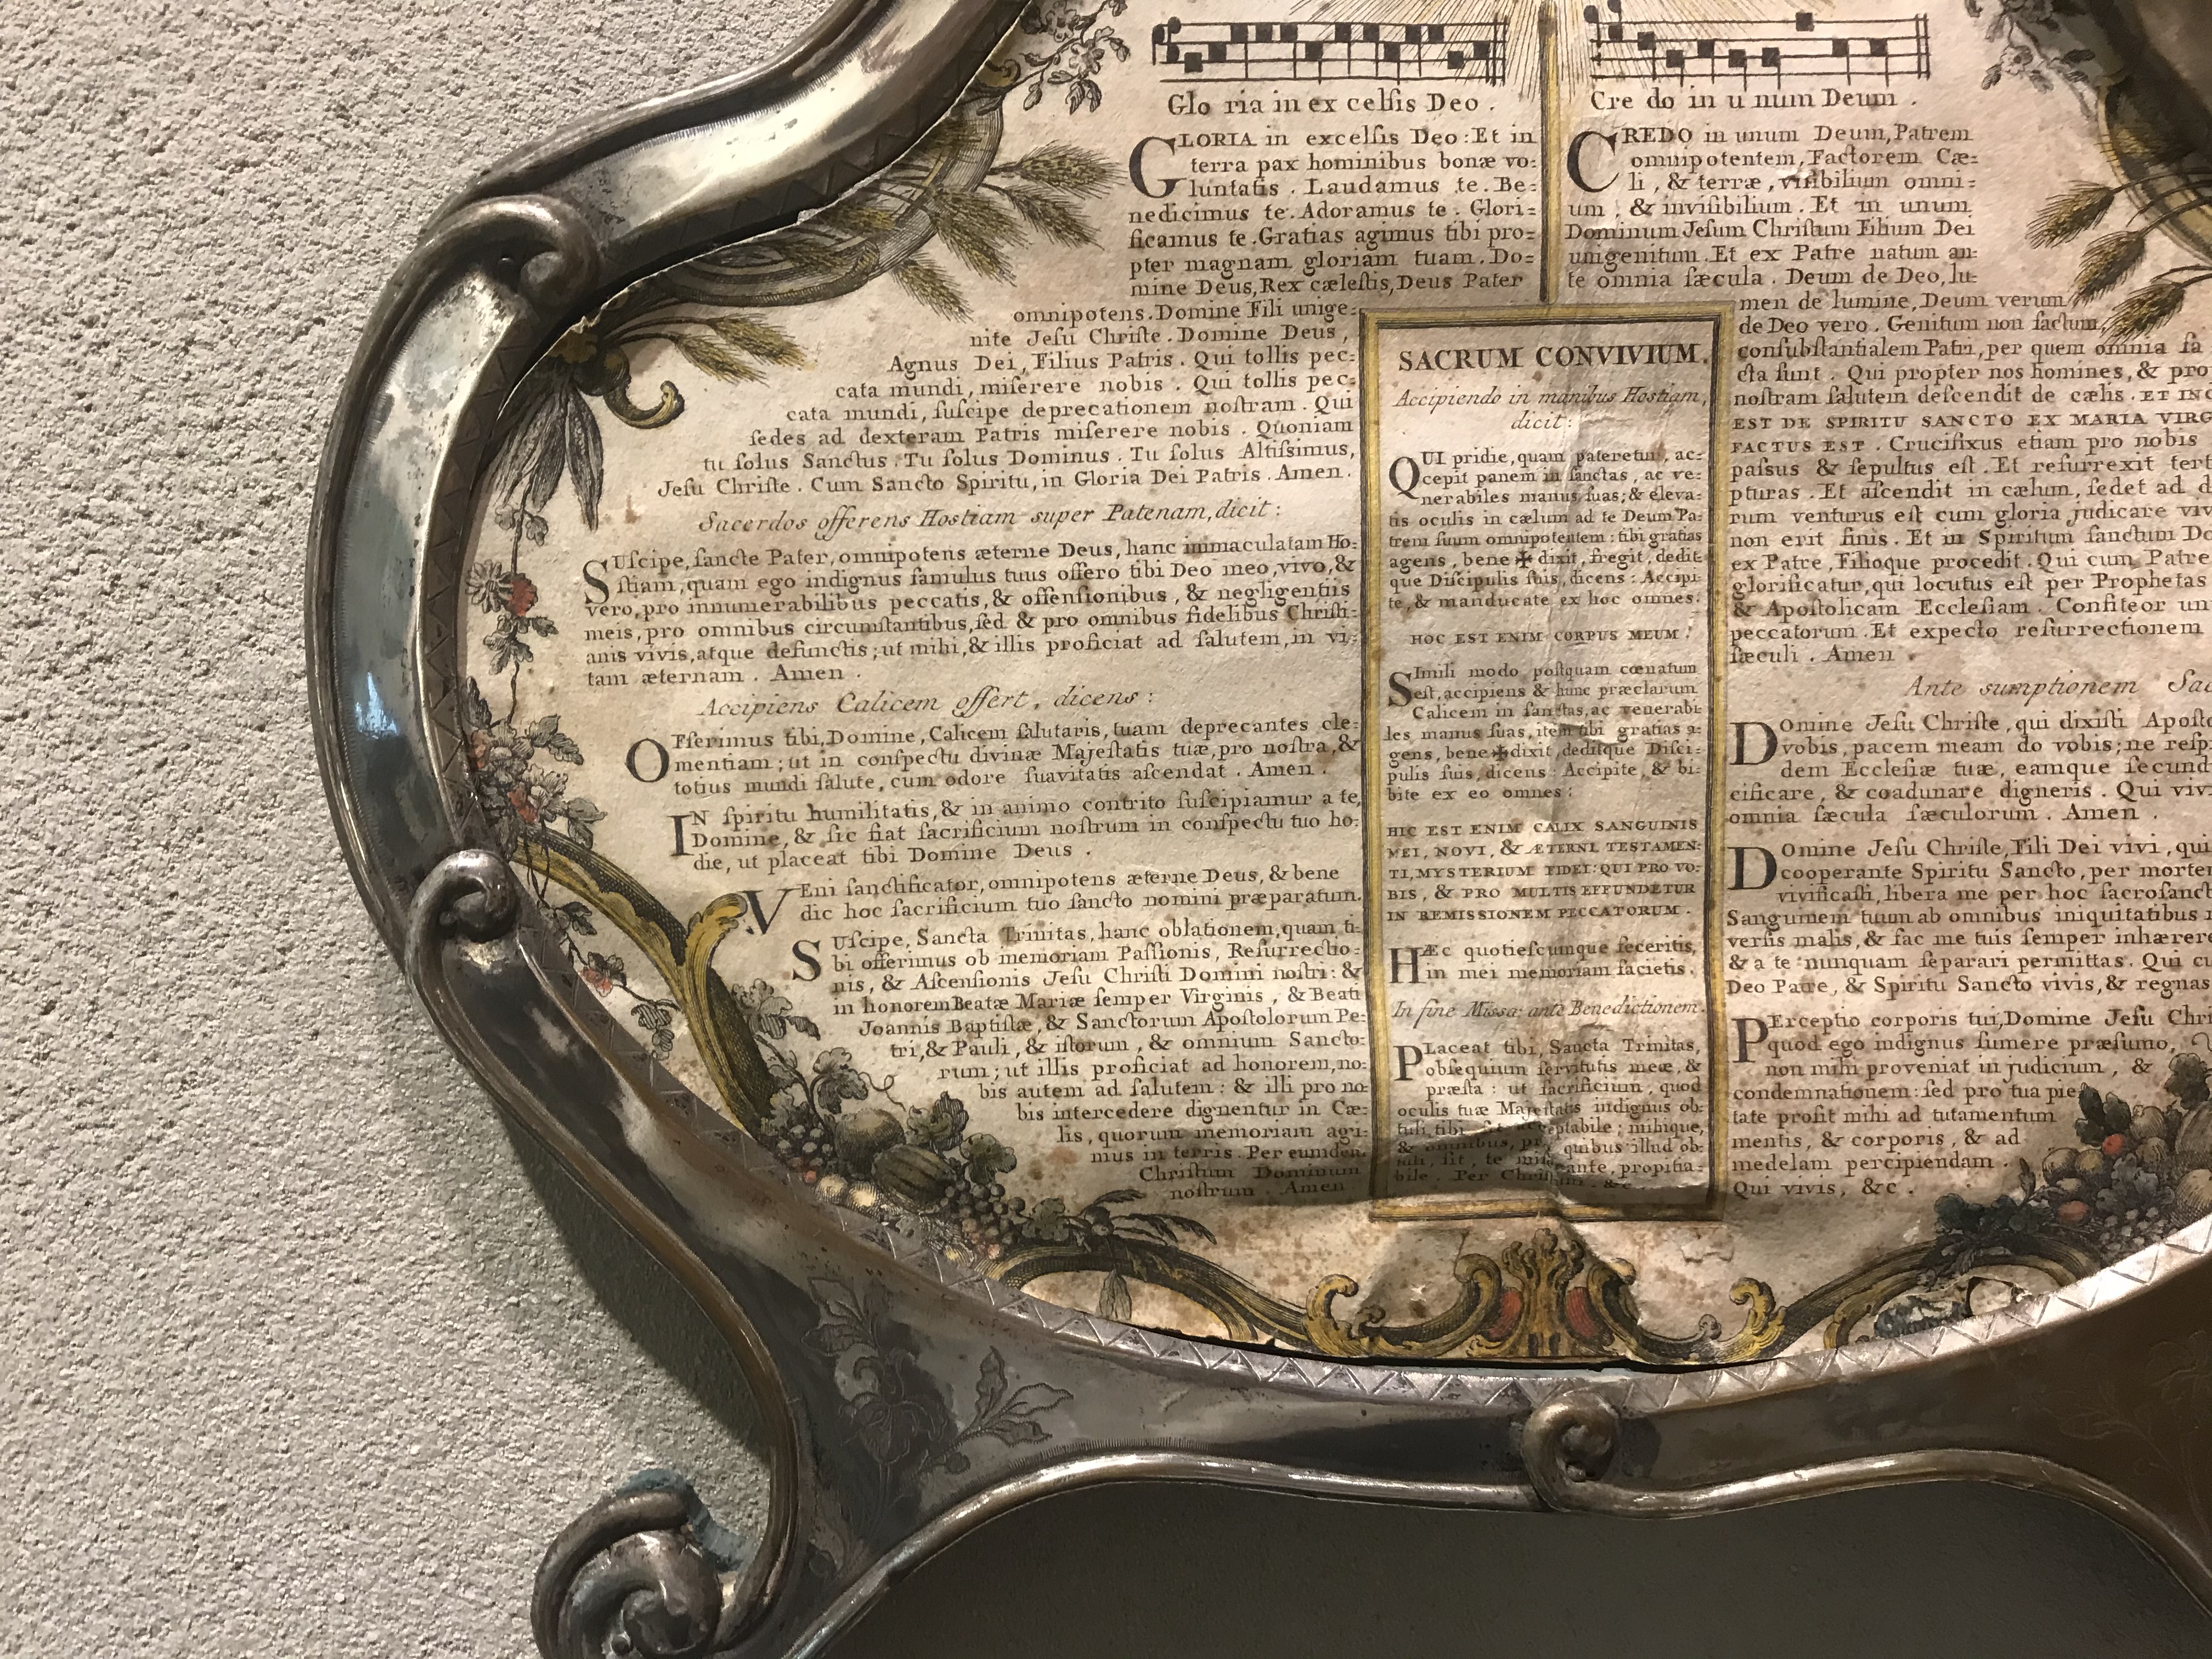 Glo ria in ex celſis Deo .
GLORIA in excelſis Deo : Et in
terra pax hominibus bonæ vo=
luntatis . Laudamus te . Be=
nedicimus te . Adoramus te . Glori=
ficamus te . Gratias agimus tibi pro=
pter magnam gloriam tuam . Do=
mine Deus, Rex cæleſtis, Deus Pater
omnipotens . Domine Fili unige=
nite Jeſu Chriſte . Domine Deus ,
Agnus Dei, Filius Patris . Qui tollis pec=
cata mundi, miſerere nobis . Qui tollis pec=
cata mundi, ſuſcipe deprecationem noſtram . Qui
ſedes ad dexteram Patris miſerere nobis . Quoniam
tu ſolus Sanctus . Tu ſolus Dominus . Tu ſolus Altiſſimus,
Jeſu Chriſte . Cum Sancto Spiritu, in Gloria Dei Patris . Amen .
Sacerdos offerens Hostiam super Patenam, dicit :
SUſcipe, ſancte Pater, omnipotens æterne Deus, hanc immaculatam Ho=
ſtiam, quam ego indignus famulus tuus offero tibi Deo meo, vivo, &
vero, pro innumerabilibus peccatis, & offenſionibus , & negligentiis
meis, pro omnibus circumſtantibus, ſed & pro omnibus fidelibus Chriſti=
anis vivis, atque defunctis ; ut mihi, & illis proficiat ad ſalutem, in vi=
tam æternam . Amen .
Accipiens Calicem offert, dicens :
OFferimus tibi, Domine, Calicem ſalutaris, tuam deprecantes cle=
mentiam ; ut in conſpectu divinæ Majeſtatis tuæ, pro noſtra, &
totius mundi ſalute, cum odore ſuavitatis aſcendat . Amen .
IN ſpiritu humilitatis, & in animo contrito ſuſcipiamur a te,
Domine, & ſic fiat ſacrificium noſtrum in conſpectu tuo ho=
die, ut placeat tibi Domine Deus .
VEni ſanctificator, omnipotens æterne Deus, & bene
dic hoc ſacrificium tuo ſancto nomini præparatum.
SUſcipe, Sancta Trinitas, hanc oblationem, quam ti=
bi offerimus ob memoriam Paſſionis, Reſurrectio=
nis, & Aſcenſionis Jeſu Chriſti Domini noſtri : &
in honorem Beatæ Mariæ ſemper Virginis , & Beati
Joannis Baptiſtæ, & Sanctorum Apoſtolorum Pe=
tri, & Pauli , & iſtorum , & omnium Sancto=
rum ; ut illis proficiat ad honorem, no=
bis autem ad ſalutem : & illi pro no
bis intercedere dignentur in Cæ=
lis, quorum memoriam agi=
mus in terris . Per eumdem
Chriſtum Dominum
noſtrum . Amen
SACRUM CONVIVIUM.
Accipiendo in manibus Hostiam,
dicit :
QUI pridie, quam pateretur, ac=
cepit panem in ſanctas , ac ve=
nerabiles manus ſuas ; & eleva=
tis oculis in cælum ad te Deum Pa=
trem ſuum omnipotentem : tibi gratias
agens , bene ✠ dixit, fregit, dedit
que Diſcipulis ſuis, dicens : Accipi=
te, & manducate ex hoc omnes .
HOC EST ENIM CORPUS MEUM .
SImili modo poſtquam cœnatum
eſt, accipiens & hunc præclarum
Calicem in ſanctas, ac venerabi=
les manus ſuas, item tibi gratias a=
gens, bene ✠ dixit, deditque Diſci=
pulis ſuis, dicens : Accipite, & bi=
bite ex eo omnes :
HIC EST ENIM CALIX SANGUINIS
MEI, NOVI, & ÆTERNI TESTAMEN=
TI, MYSTERIUM FIDEI : QUI PRO VO=
BIS, & PRO MULTIS EFFUNDETUR
IN REMISSIONEM PECCATORUM .
HÆc quotieſcumque feceritis,
in mei memoriam facietis .
In fine Missæ ante Benedictionem.
PLaceat tibi, Sancta Trinitas,
obſequium ſervitutis meæ, &
præſta : ut ſacrificium , quod
oculis tuæ Majeſtatis indignus ob=
tuli, tibi ſit acceptabile ; mihique,
& omnibus, pro quibus illud ob=
tuli, ſit , te miſerante, propitia=
bile . Per Chriſtum . &c
Cre do in u num Deum .
CREDO in unum Deum, Patrem
omnipotentem, Factorem Cæ=
li , & terræ , viſibilium omni=
um , & inviſibilium . Et in unum
Dominum Jeſum Chriſtum Filium Dei
unigenitum . Et ex Patre natum an=
te omnia ſæcula . Deum de Deo, lu=
men de lumine, Deum verum
de Deo vero . Genitum non factum,
conſubſtantialem Patri, per quem omnia fa
cta ſunt . Qui propter nos homines, & pro
noſtram ſalutem deſcendit de cælis . ET INC
EST DE SPIRITU SANCTO EX MARIA VIRG
FACTUS EST . Crucifixus etiam pro nobis
paſſus & ſepultus eſt . Et reſurrexit tert
pturas . Et aſcendit in cælum, ſedet ad d
rum venturus eſt cum gloria judicare viv
non erit finis . Et in Spiritum ſanctum Do
ex Patre, Filioque procedit . Qui cum Patre
glorificatur, qui locutus eſt per Prophetas
& Apoſtolicam Eccleſiam . Confiteor un
peccatorum . Et expecto reſurrectionem
ſæculi . Amen .
Ante sumptionem Sac
DOmine Jeſu Chriſte, qui dixiſti Apoſto
vobis, pacem meam do vobis ; ne reſp
dem Eccleſiæ tuæ, eamque ſecund
cificare , & coadunare digneris . Qui viv
omnia ſæcula ſæculorum . Amen .
DOmine Jeſu Chriſte, Fili Dei vivi , qui
cooperante Spiritu Sancto, per morte
vivificaſti, libera me per hoc ſacroſanct
Sanguinem tuum ab omnibus iniquitatibus
verſis malis, & fac me tuis ſemper inhærere
& a te nunquam ſeparari permittas . Qui cu
Deo Patre, & Spiritu Sancto vivis, & regnas
PErceptio corporis tui, Domine Jeſu Chri
quod ego indignus ſumere præſumo,
non mihi proveniat in judicium , &
condemnationem : ſed pro tua pie
tate proſit mihi ad tutamentum
mentis, & corporis , & ad
medelam percipiendam .
Qui vivis, &c .